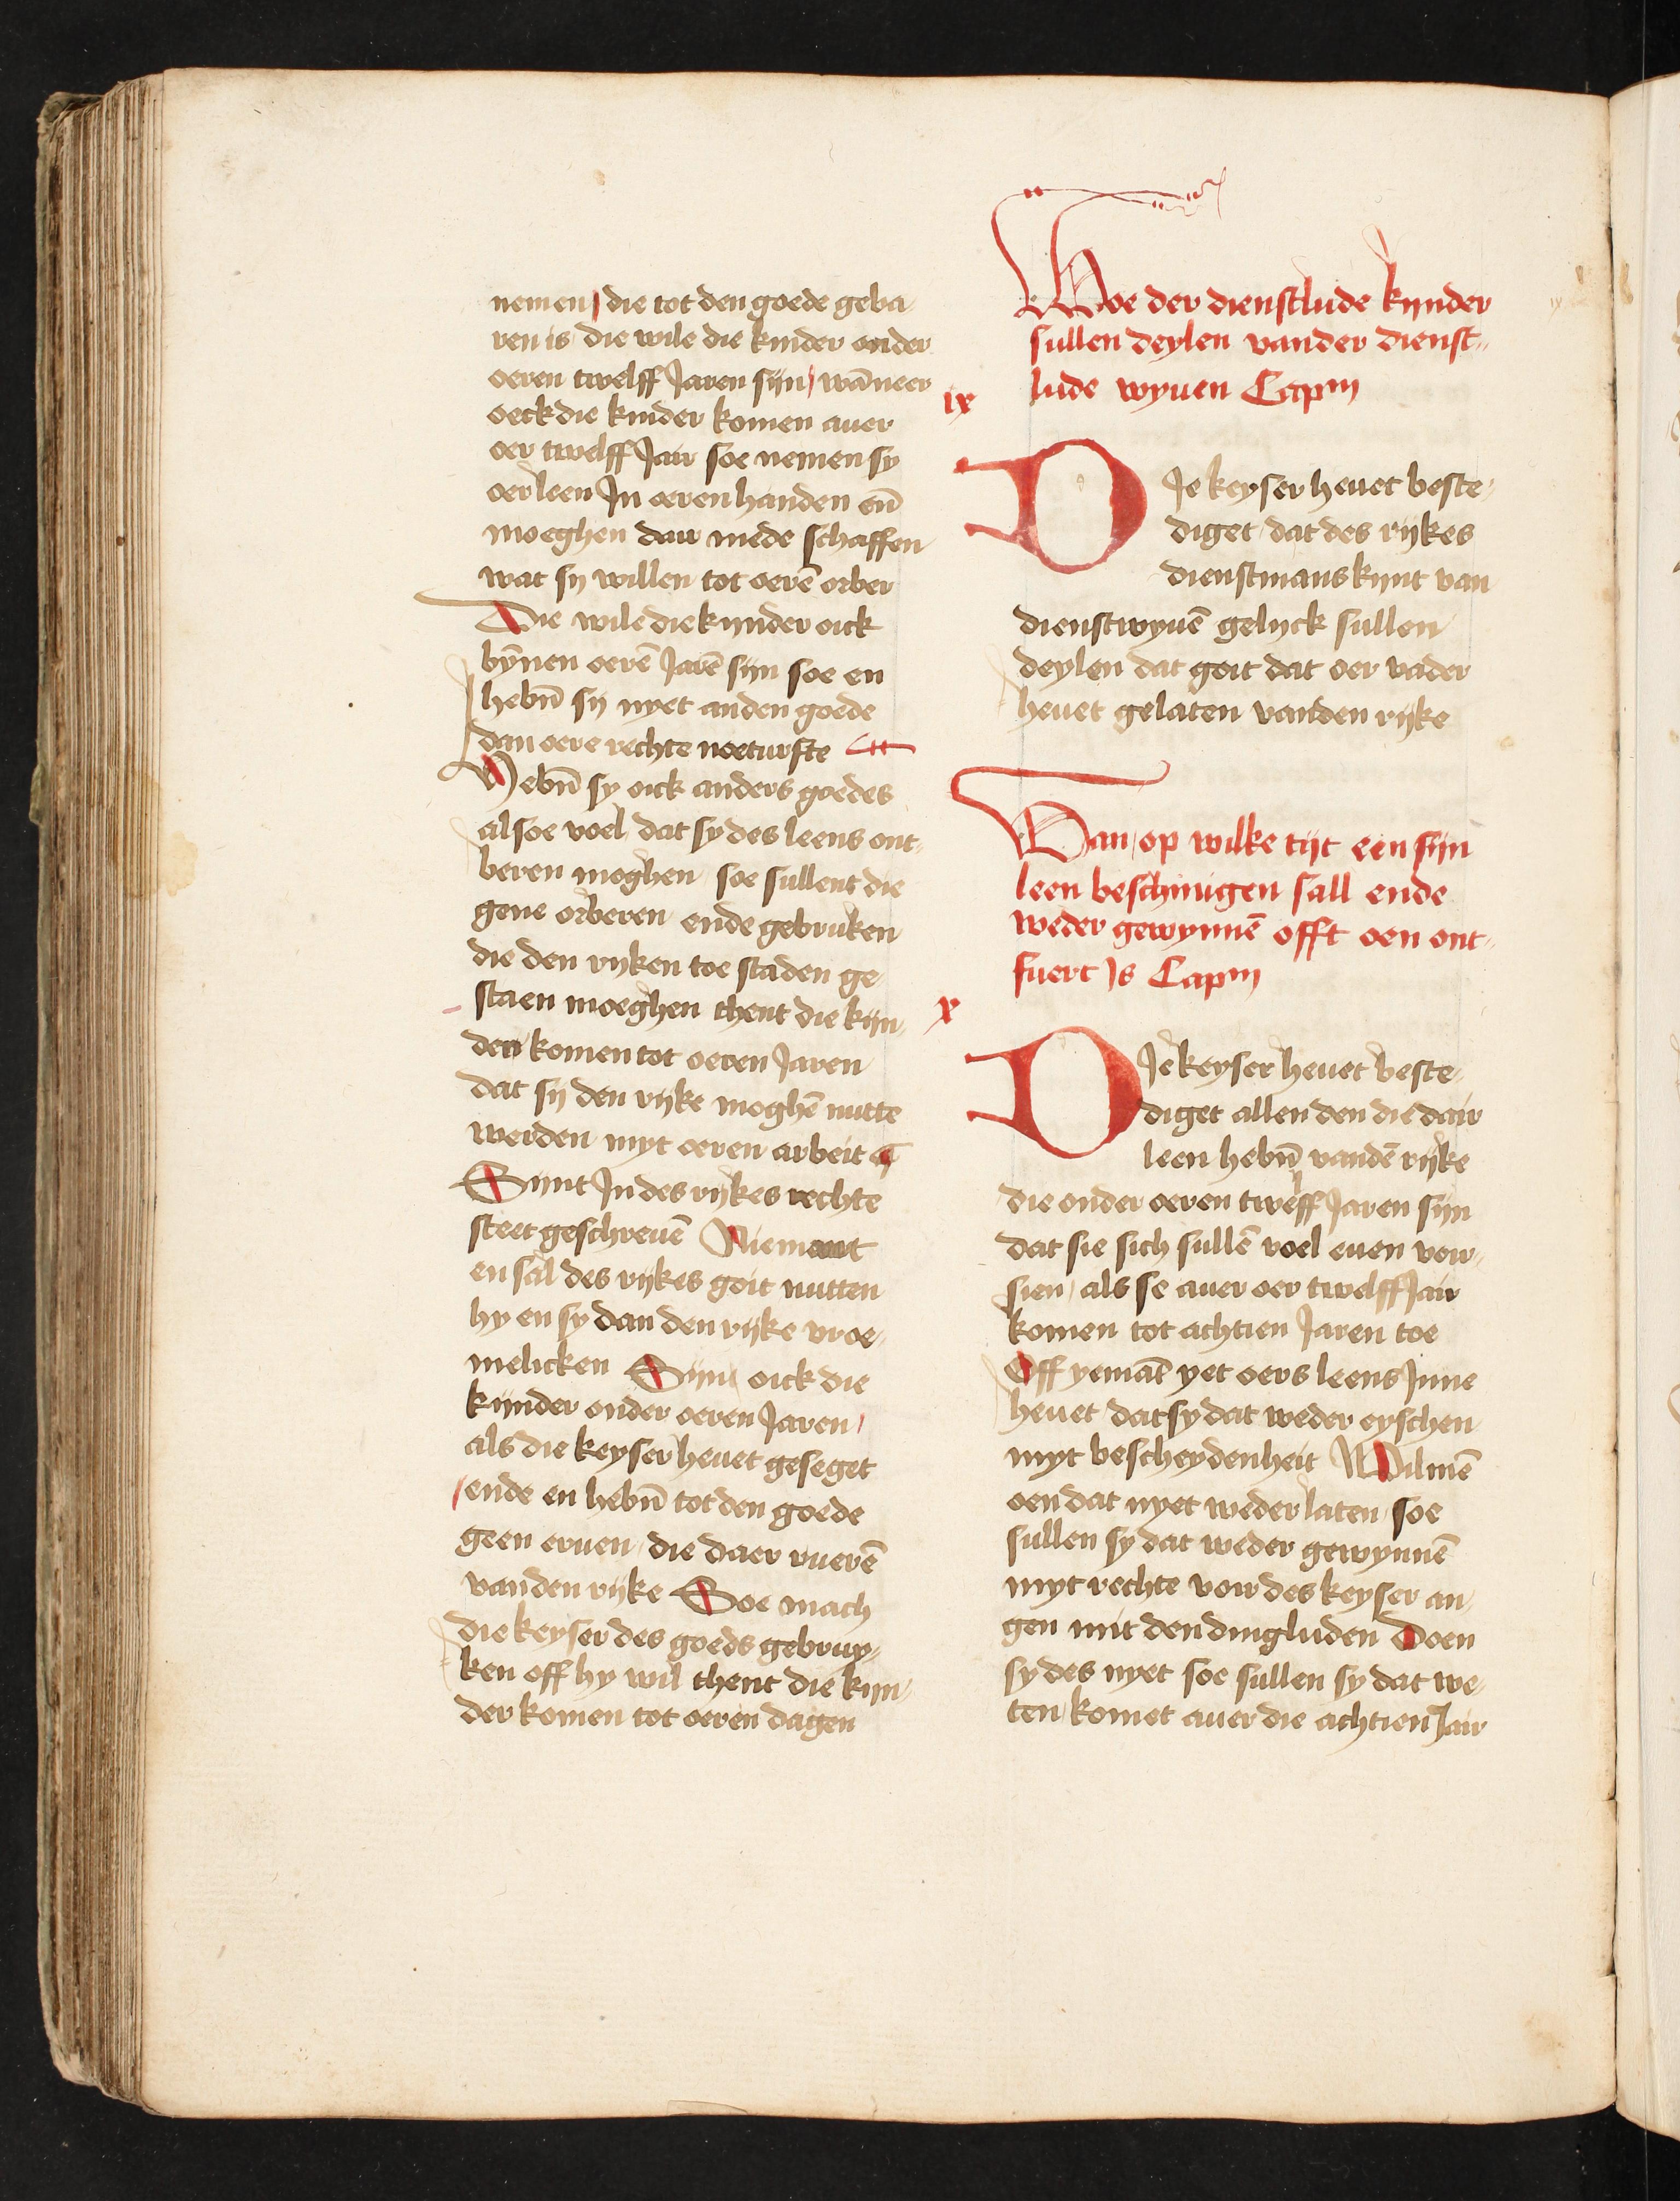 nemen / die tot den goede geba
ren is die wile die kinder onder
oeren twelff Jaren sijn / wāneer
oeck die kinder komen auer
oer twelff Jair soe nemen sy
oer leen In oeren handen eñ
moeghen dair mede schaffen
wat sy willen tot oerē orber
Die wile die kijnder oick
bȳnen oerē Jarē sijn soe en
hebñ sij nyet anden goede
dan oere rechte noeturfte
Hebñ sy oick anders goedes
alsoe voel dat sy des leens ont-
beren moghen soe sullent die
gene orberen ende gebruken
die den rijken toe staden ge-
staen moeghen thent die kijn-
der komen tot oeren Jaren
dat sij den rijke moghē nutte
werden myt oeren arbeit
Sijnt In des rijkes rechte
steet geschreuē Niemant
en sal des rijkes goit nutten
hy en sy dan den rijke vroe-
melicken Sijn oick die
kijnder onder oeren Jaren /
als die keyser heuet geseget
/ ende en hebñ tot den goede
geen eruen / die daer ruerē
vanden rijke Soe mach
die keyser des goeds gebruy-
ken off hy wil thent die kijn-
der komen tot oeren dagen
Woe der dienstlude kijnder
sullen deylen vander dienst-
lude wyuen Capm
ix
DIe keyser heuet beste-
diget / dat des rijkes
dienstmans kijnt van
dienstwyuē gelijck sullen
deylen dat goit dat oer vader
heuet gelaten vanden rijke
Van / op wilke tijt een sijn
leen beschinigen sall ende
weder gewynnē offt oen ont-
fuert Is Capm
x
DIe keyser heuet beste-
diget allen den die dair
leen hebñ vandē rijke
die onder oeren twelff Jaren sijn
dat sie sich sullē voel euen vor-
sien / als se auer oer twelff Jair
komen tot achtien Jaren toe
Off yemāt yet oers leens Inne
heuet dat sy dat weder eyschen
myt bescheydenheit Wilmē
oen dat nyet weder laten soe
sullen sy dat weder gewynnē
myt rechte vor des keyser an
gen mit den dingluden Doen
sy des nyet soe sullen sy dat we-
ten / komet auer die achtien Jair